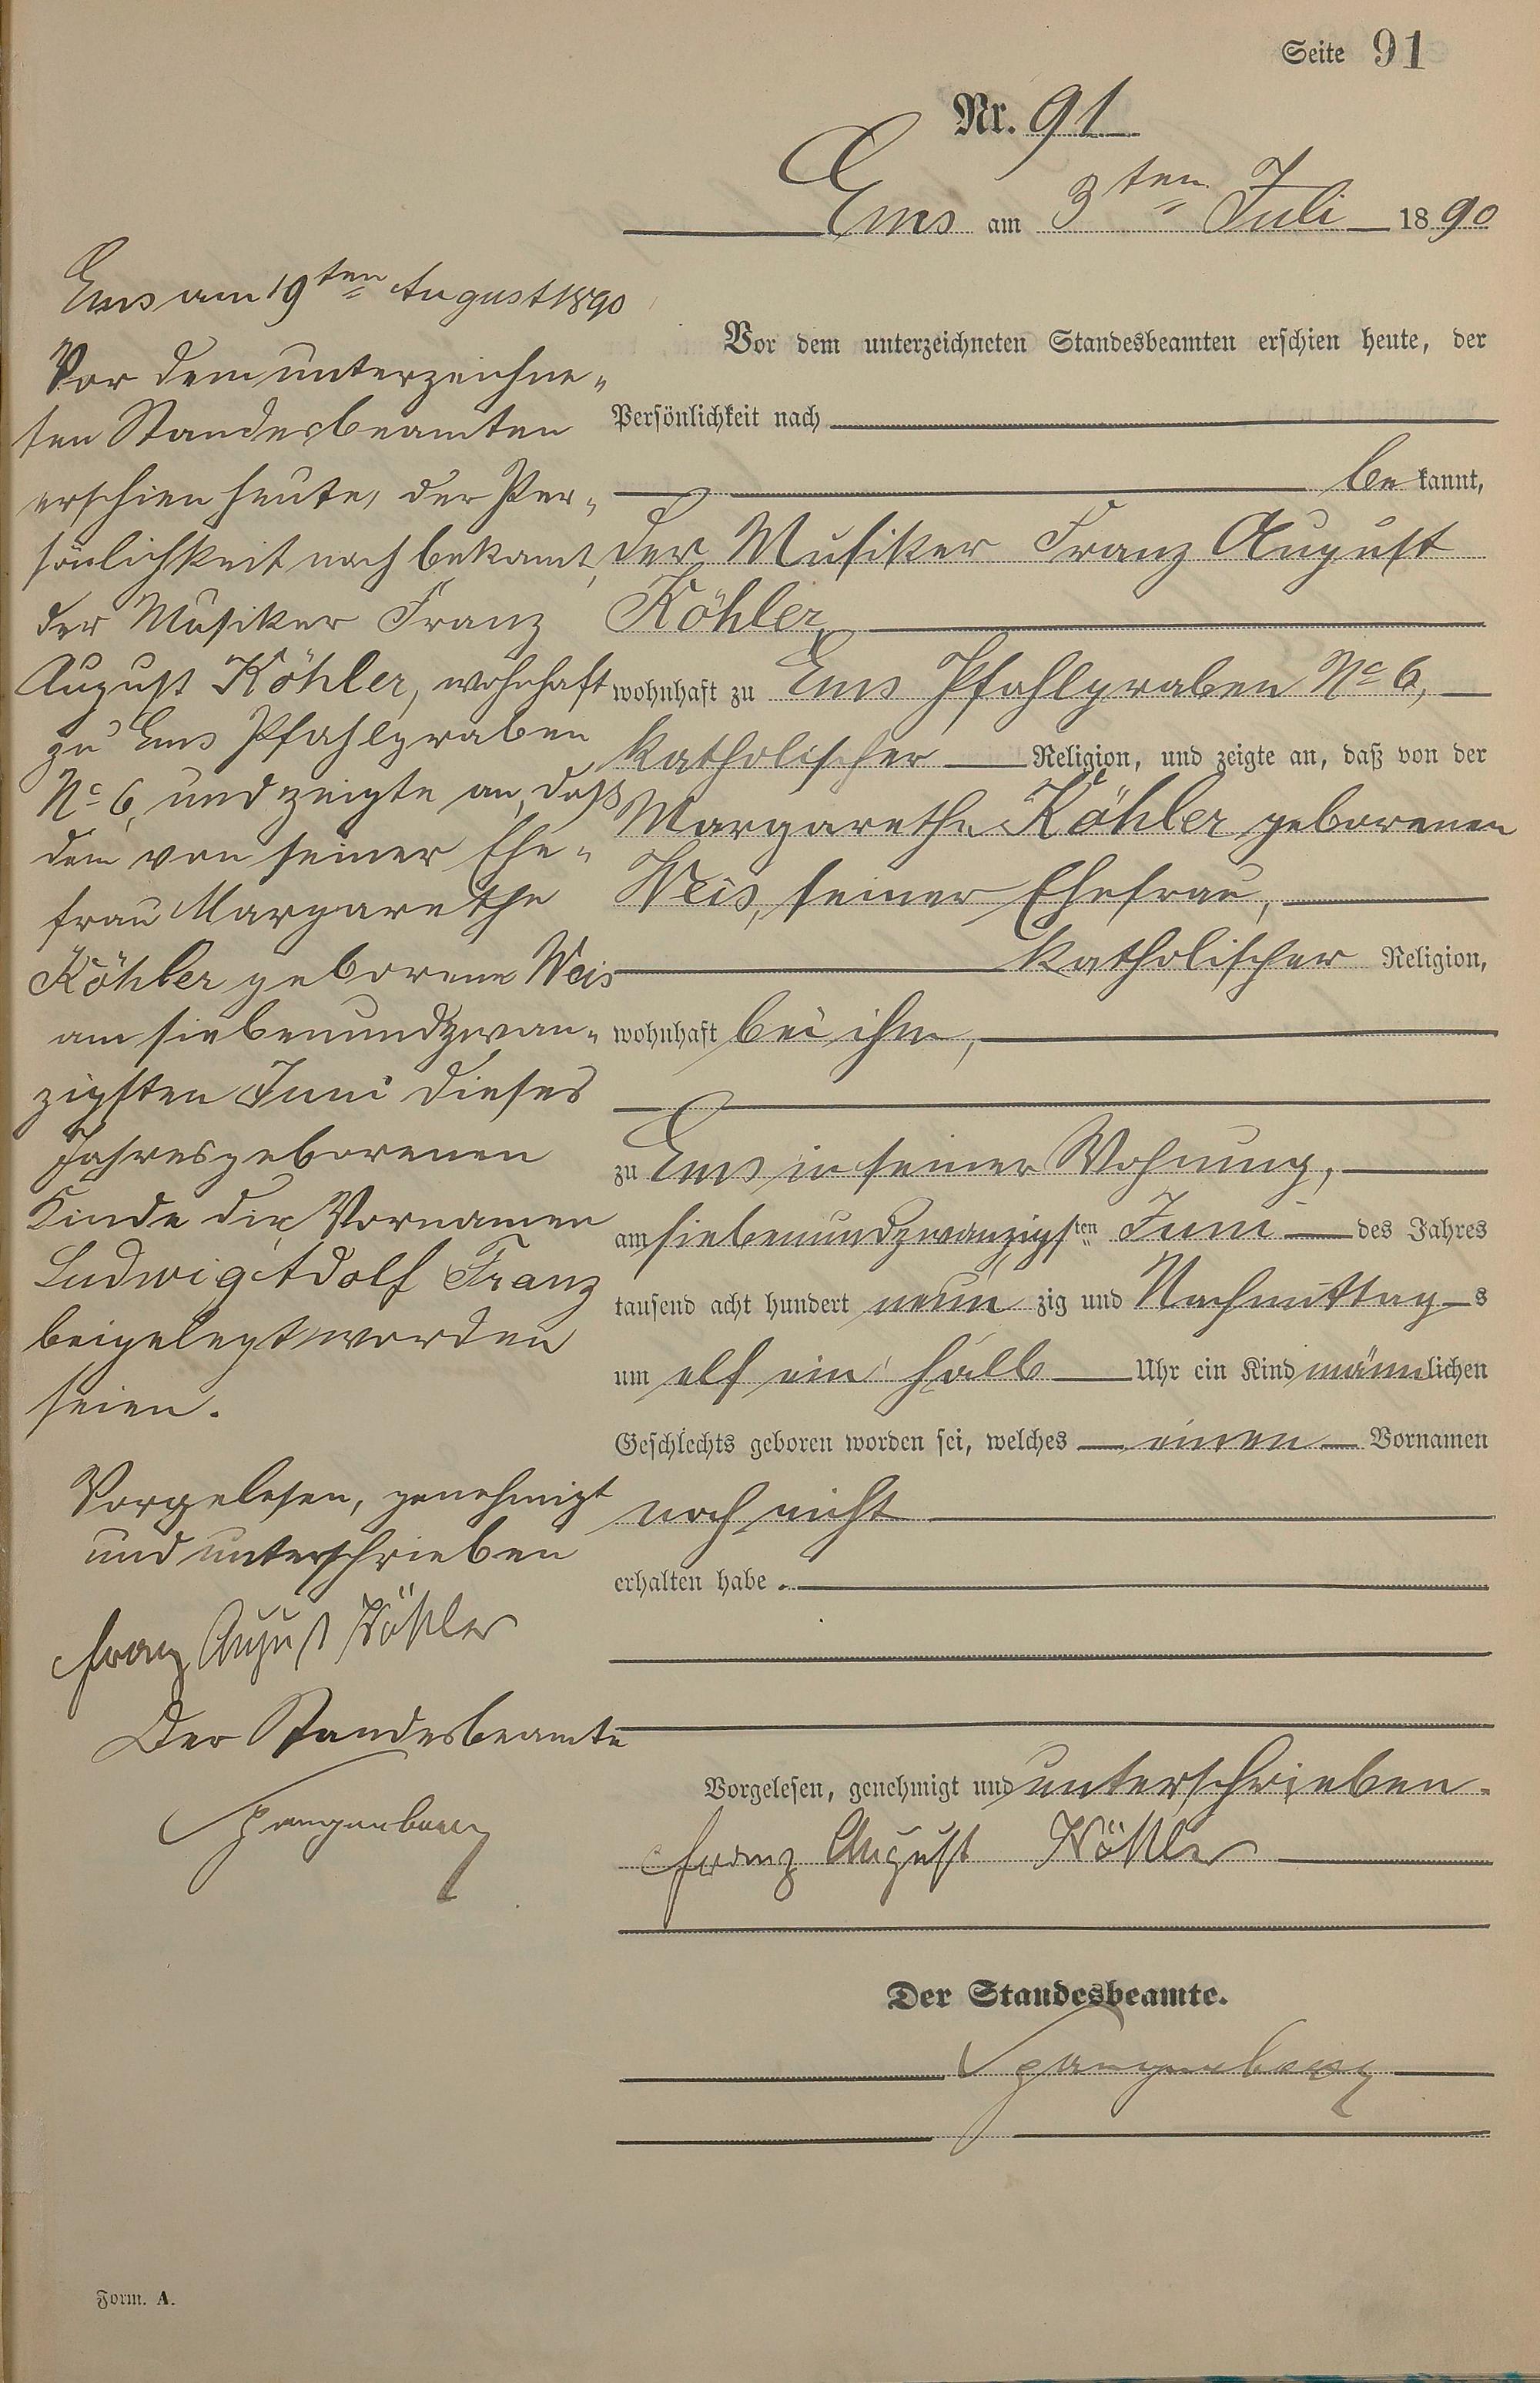 Seite 91
Nr. 91
Ems am 3ten Juli 1890
Vor dem unterzeichneten Standesbeamten erschien heute, der
Persönlichkeit nach
be kannt,
der Musiker Franz August
Köhler,
wohnhaft zu Ems Pfahlgraben No 6,
katholischer Religion, und zeigte an, daß von der
Margarethe Köhler geborenen
Weis, seiner Ehefrau,
katholischer Religion,
wohnhaft bei ihm,
zu Ems in seiner Wohnung,
am siebenundzwanzigsten Juni des Jahres
tausend acht hundert neun zig und Nachmittags
um elf ein halb Uhr ein Kind männlichen
Geschlechts geboren worden sei, welches einen Vornamen
noch nicht
erhalten habe.
Vorgelesen, genehmigt und unterschrieben.
Franz August Köhler
Der Standesbeamte.
Spangenberg
Ems am 19ten August 1890
Vor dem unterzeichne-
ten Standesbeamten
erschien heute, der Per-
sönlichkeit nach bekannt,
der Musiker Franz
August Köhler, wohnhaft
zu Ems Pfahlgraben
No 6, und zeigte an, daß
dem von seiner Ehe-
frau Margarethe
Köhler geborene Weis
am siebenundzwan-
zigsten Juni dieses
Jahres geborenen
Kinde die Vornamen
Ludwig Adolf Franz
beigelegt worden
seien.
Vorgelesen, genehmigt
und unterschrieben
Franz August Köhler
Der Standesbeamte
Spangenberg
Form. A.